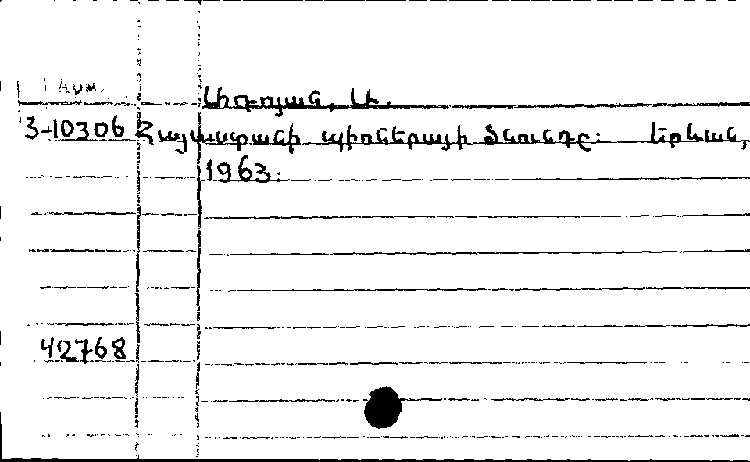 Լիդոյան, Լ.
3-10306 Հայաստանի պիոներայի ծնունդը: Երևան,
1963.
42768